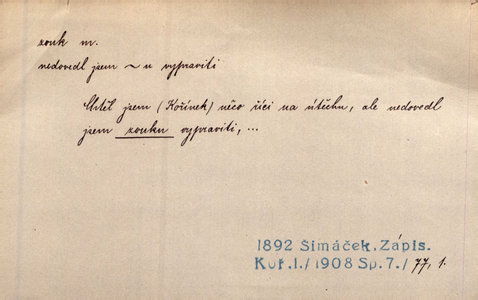 zouk m.
nedovedl jsem ~u vypraviti
Chtěl jsem (Kořínek) něco říci na útěchu, ale nedovedl
jsem zouku vypraviti, ...
1892 Šimáček, Zápis.
Koř.I./1908 Sp.7./ 77, 1.